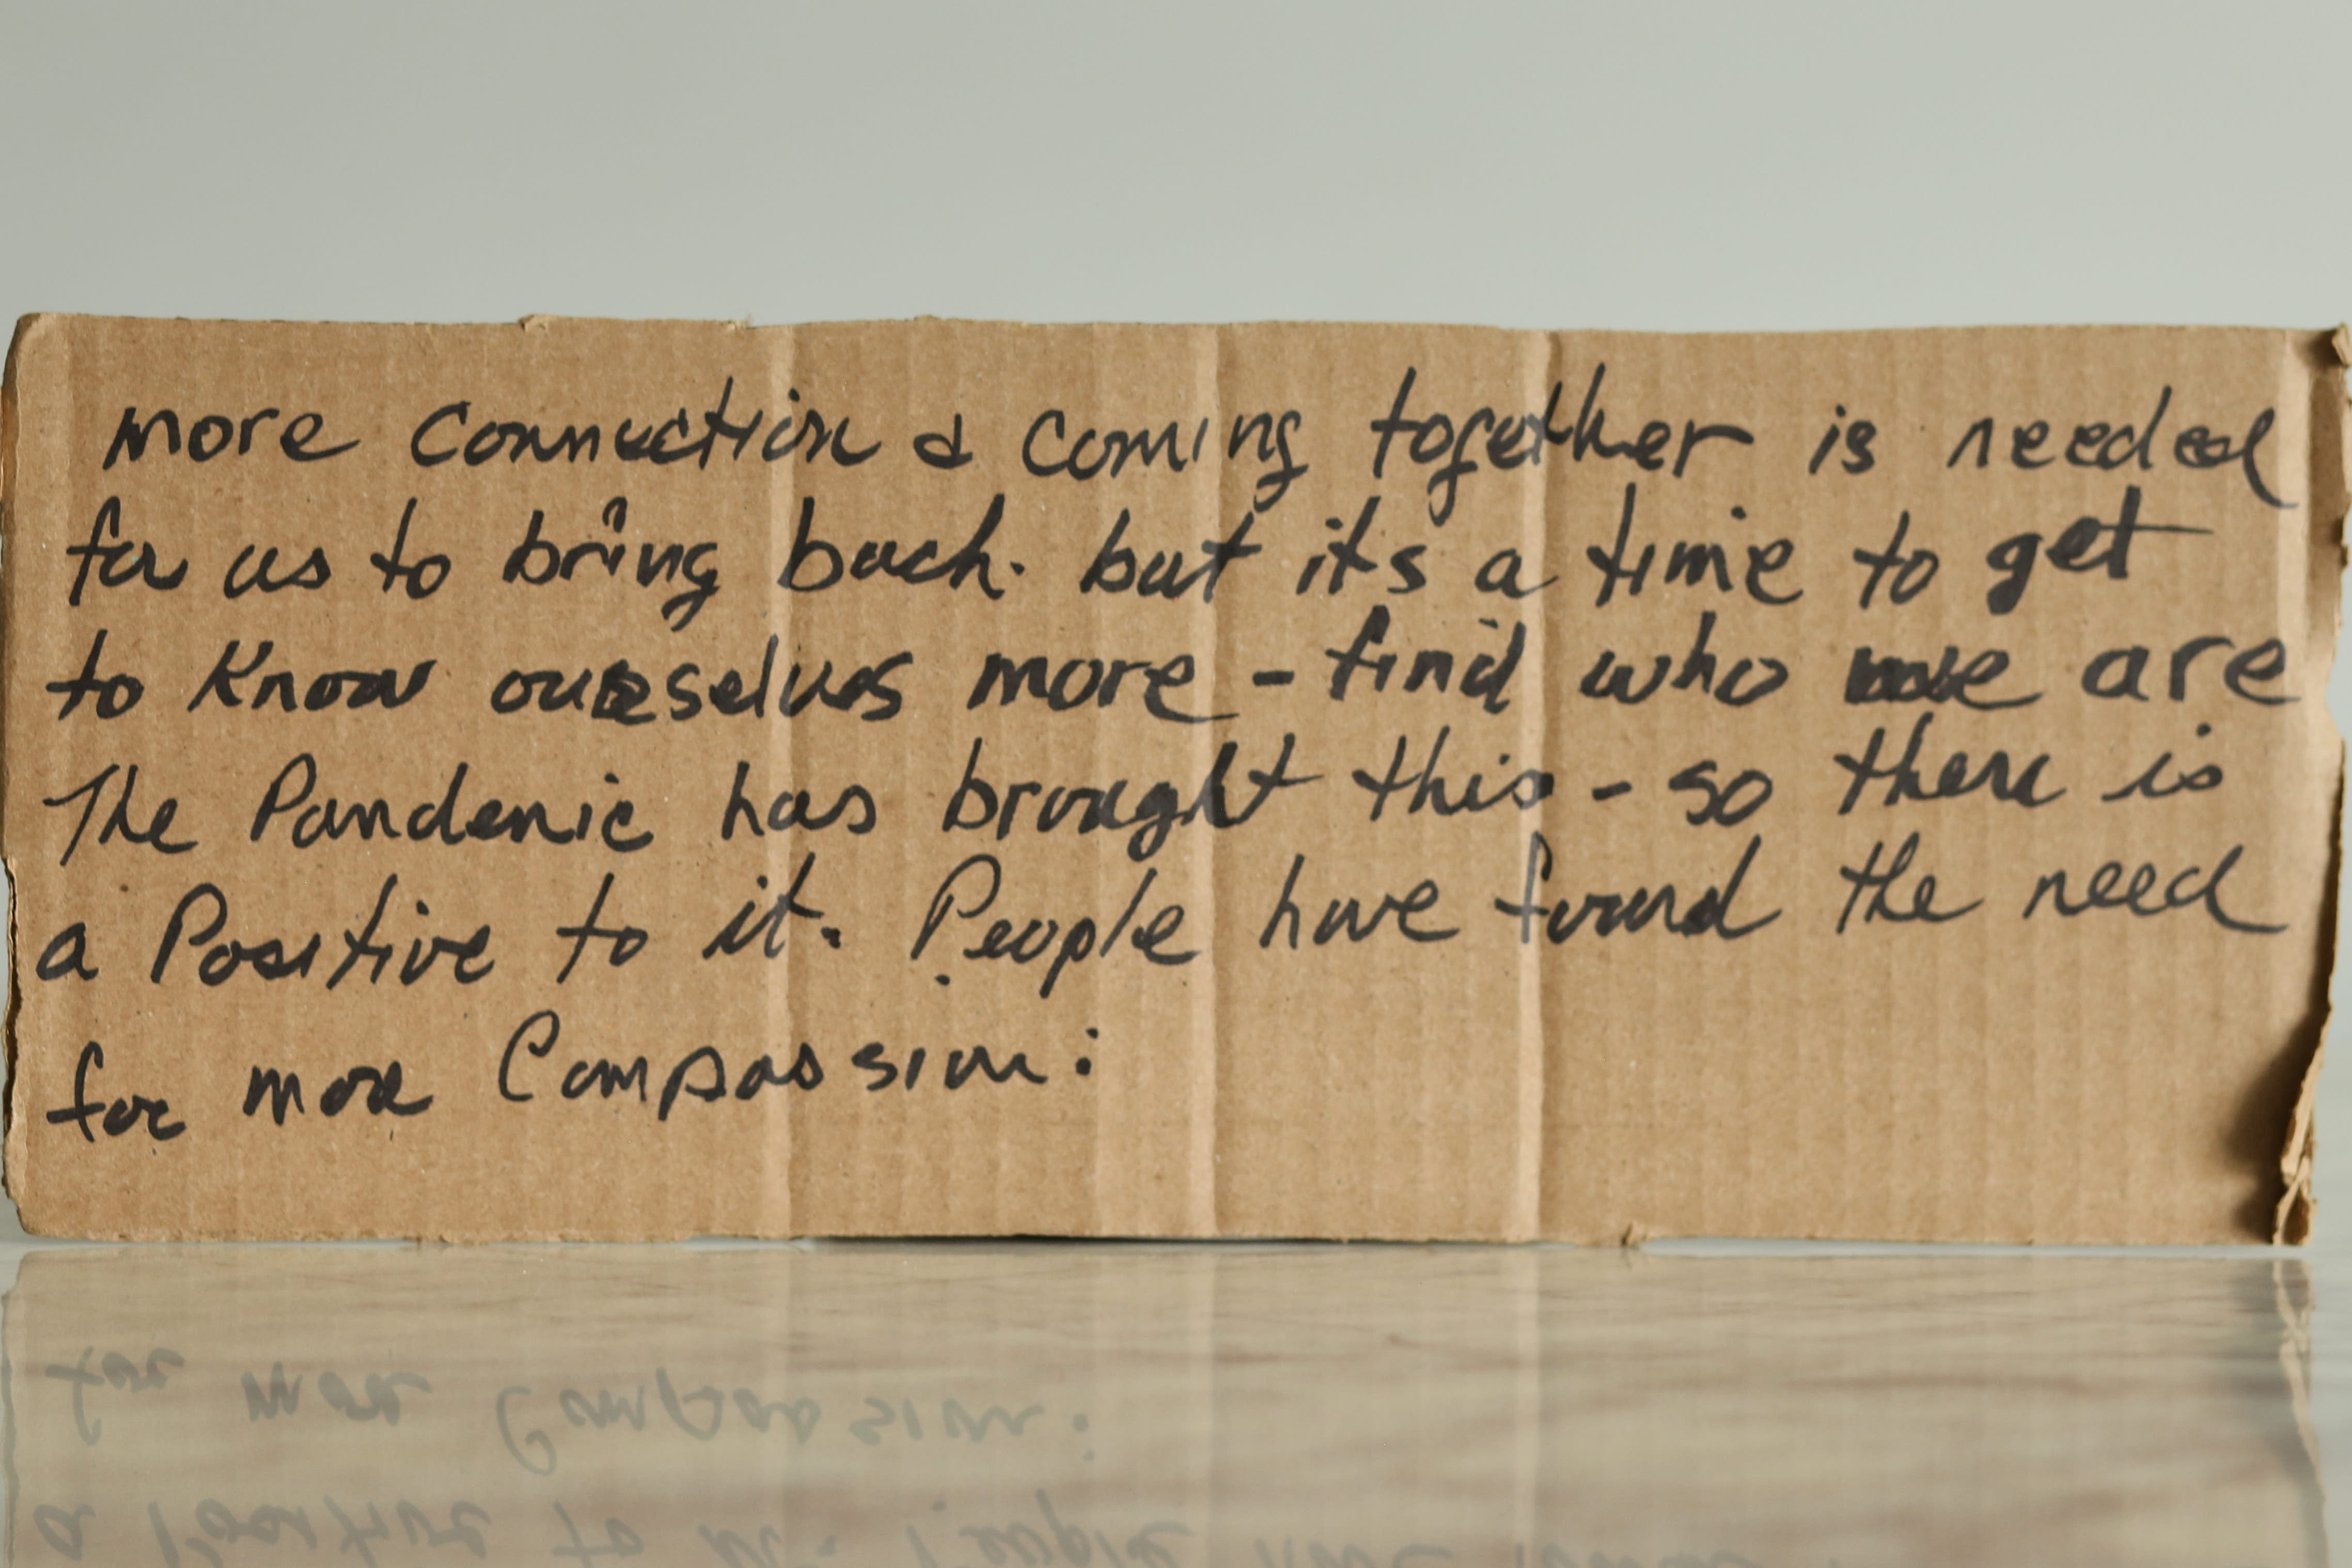 more connection & coming together is needed
for us to bring back. but its a time to get
to Know ourselves more - find who we are
The Pandemic has brought this - so there is
a Positive to it. People have found the need
for more Compassion: